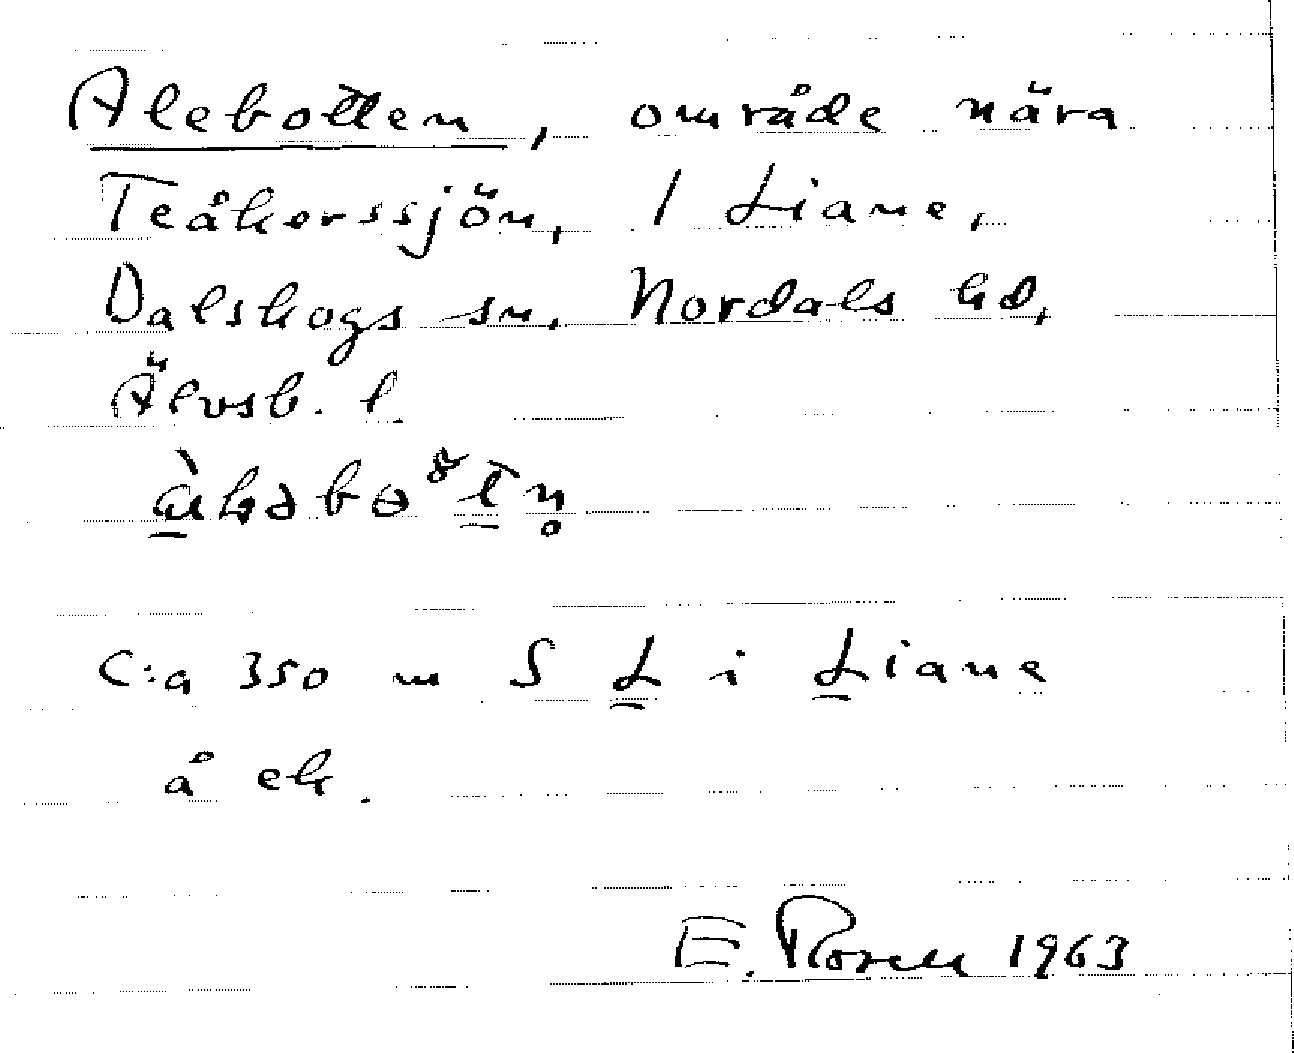 Alebotten, område nära
Teåkerssjön, 1 Liane,
Dalskogs sn, Nordals hd,
Älvsb. l.
C:a 350 m S L i Liane
å ek.
E. Rosell 1963